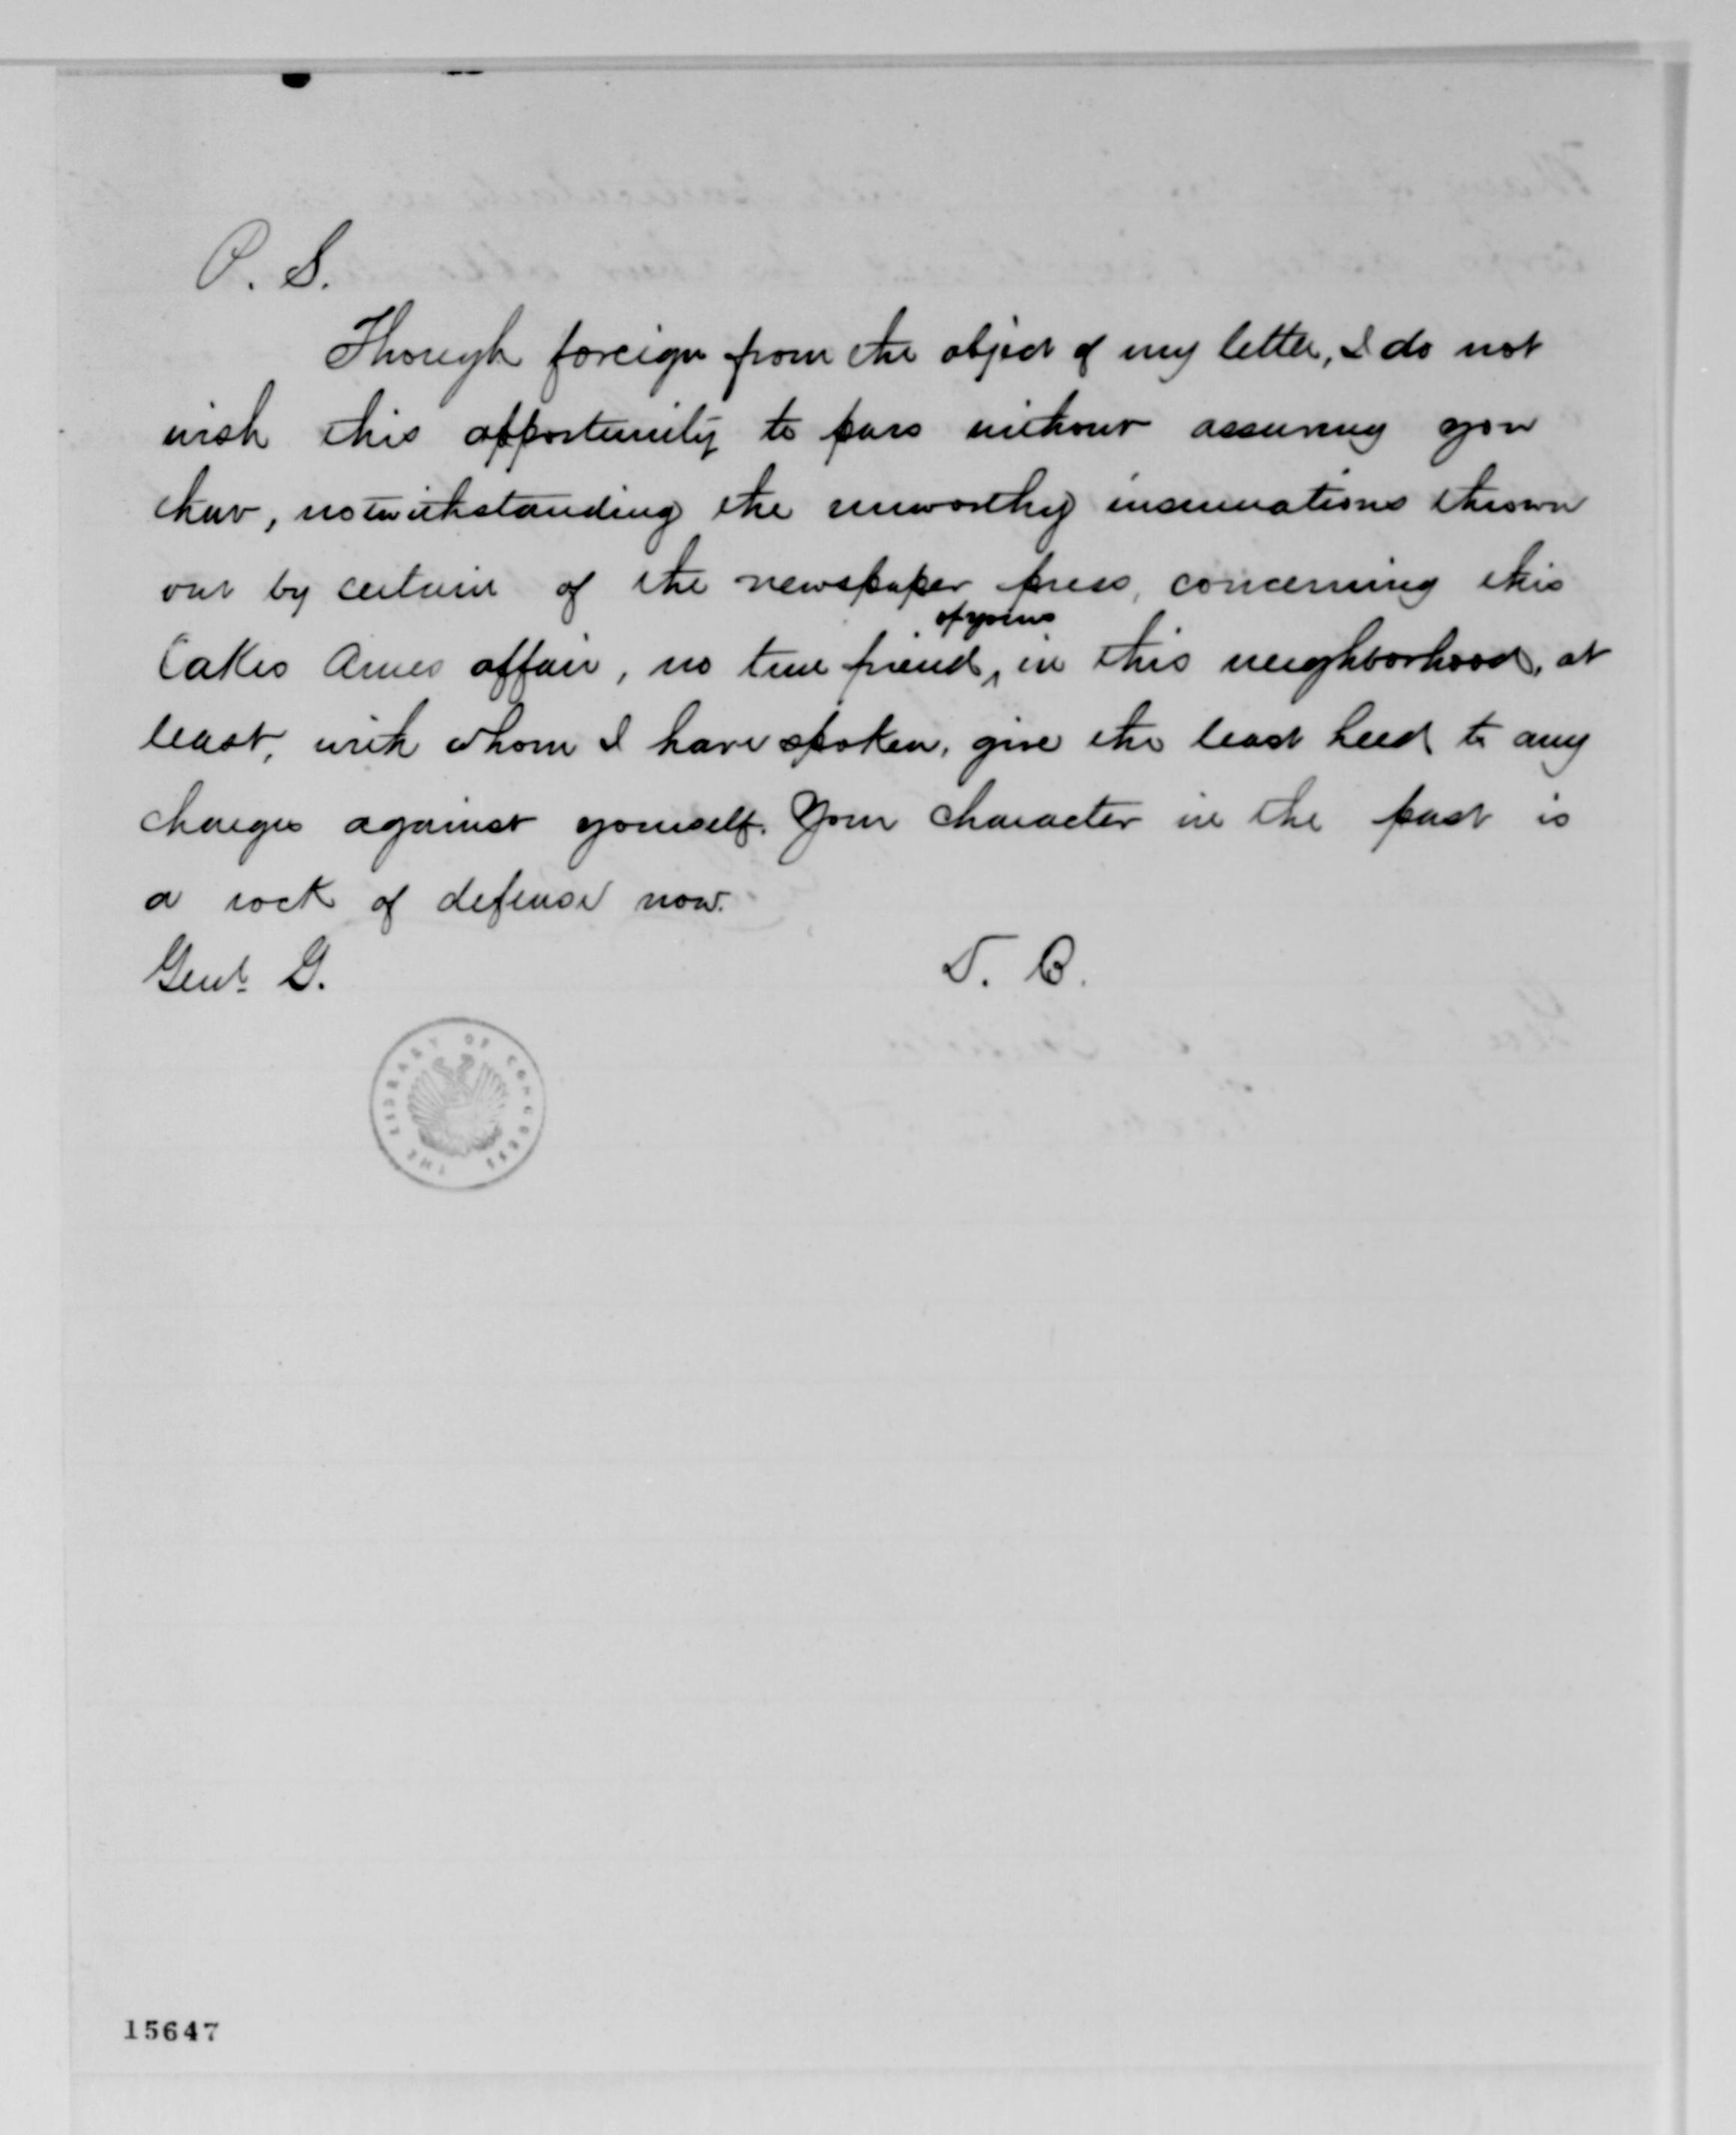 P. S.
Though foreign from the object of my letter, I do not
wish this opportunity to pass without assuring you
that, notwithstanding the unworthy insinuations thrown
out by certain of the newspaper press, concerning this
Oakes Ames affair, no true friend of yours, in this neighborhood, at
least, with whom I have spoken, give the least heed to any
charges against yourself. Your character in the past is
a rock of defense now.
Genl. G.
T. B.
THE LIBRARY OF CONGRESS
15647